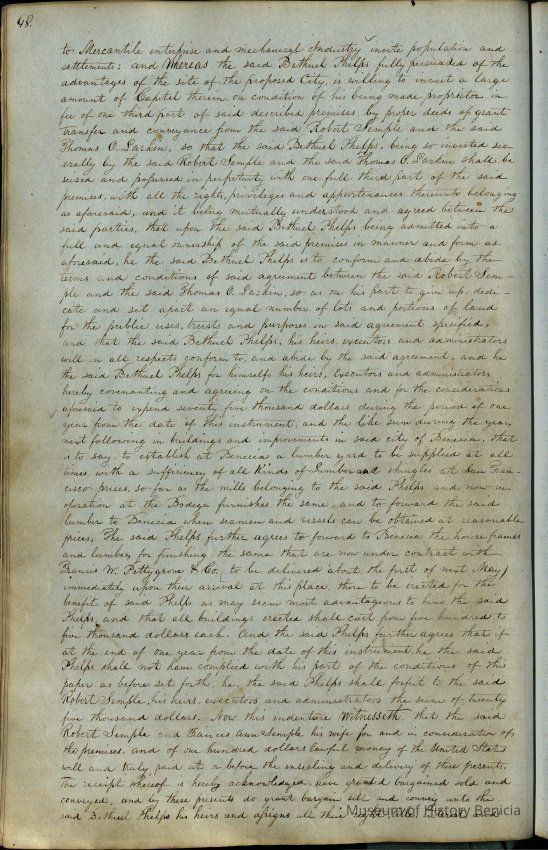 48.
to Mercantile enterprise and mechanical Industry invite population and
settlements; and Whereas the said Bethuel Phelps fully persuaded of the
advantages of the site of the proposed City, is willing to invest a large
amount of Capital therein, on condition of his being made proprietor in
fee of one third part of said described premises, by proper deeds of grant
transfer and conveyance from the said Robert Semple and the said
Thomas O. Larkin, so that the said Bethuel Phelps, being so invested sev-
erally by the said Robert Semple and the said Thomas O. Larkin shall be
seized and possessed in perpetuity, with one full third part of the said
premises, with all the rights, privileges and appurtenances thereunto belonging
as aforesaid, and it being mutually understood and agreed between the
said parties, that upon the said Bethuel Phelps being admitted into a
full and equal ownership of the said premises in manner and form as
aforesaid, he the said Bethuel Phelps is to conform and abide by the
terms and conditions of said agreement between the said Robert Sem-
ple and the said Thomas O. Larkin, so as on his part to give up, dedi
cate and set apart an equal number of lots and portions of land
for the public uses, trusts and purposes in said agreement specified,
and that the said Bethuel Phelps, his heirs, executors and administrators
will in all respects conform to, and abide by the said agreement, and he
the said Bethuel Phelps for himself, his heirs, executors and administrators
hereby covenanting and agreeing on the conditions and for the considerations
aforesaid to expend seventy five thousand dollars during the period of one
year from the date of this instrument, and the like sum during the year
next following in buildings and improvements in said city of Benicia, that
is to say, to establish at Benicia a lumber yard to be supplied at all
times with a sufficiency of all Kinds of Lumber and shingles at San Fran-
cisco prices, so far as the mills belonging to the said Phelps and now in
operation at the Bodega furnishes the same, and to forward the said
lumber to Benicia when seamen and vessels can be obtained at reasonable
prices. The said Phelps further agrees to forward to Benicia the house frames
and lumber for finishing the same that are now under contract with
Francis W. Pettygrove & Co., to be delivered about the first of next May,
immediately upon their arrival at this place, there to be erected for the
benefit of said Phelps as may seem most advantageous to him the said
Phelps, and that all buildings erected shall cost from five hundred to
five thousand dollars each. And the said Phelps further agrees that if
at the end of one year from the date of this instrument he the said
Phelps shall not have complied with his part of the conditions of this
paper as before set forth, he, the said Phelps shall forfeit to the said
Robert Semple, his heirs, executors and administrators the sum of twenty
five thousand dollars. Now this indenture Witnesseth, that the said
Robert Semple and Frances Ann Semple his wife for and in consideration of
the premises, and of one hundred dollars lawful money of the United States
well and truly paid at or before the ensealing and delivery of these presents.
The receipt whereof is hereby acknowledged, have granted bargained sold and
conveyed, and by these presents do grant bargain sell and convey unto the
said Bethuel Phelps his heirs and assigns all their right title interest and
Museum of History Benicia